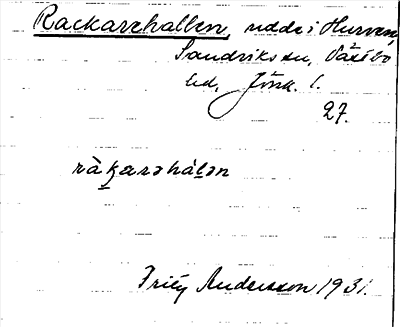 Rackarehallen, udde i Hurven,
Sandriks sn, Västbo
hd, Jönk. l.
27.
ràkarəhálən
Andersson 1931.